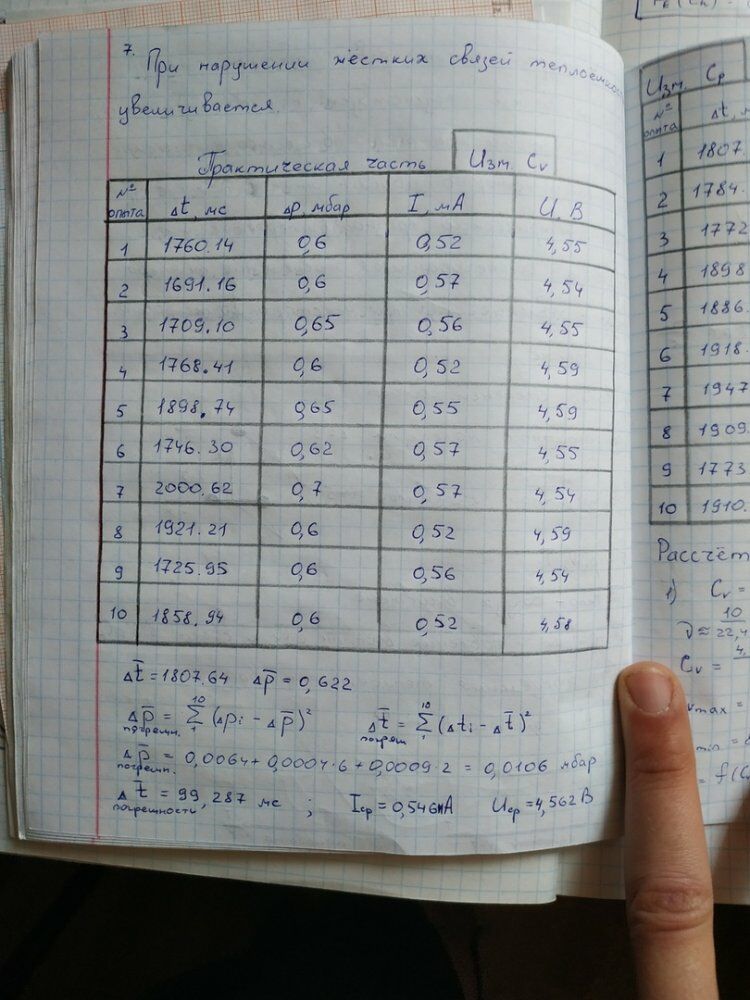 7. При нарушении жёстких связей
увеличивается.
Практическая часть Изм. Cv
№ опыта Δt, мс Δp, мбар I, мА U, В
1 1760.14 0,6 0,52 4,55
2 1691.16 0,6 0,57 4,54
3 1709.10 0,65 0,56 4,55
4 1768.41 0,6 0,52 4,59
5 1898.74 0,65 0,55 4,59
6 1746.30 0,62 0,57 4,55
7 2000.62 0,7 0,57 4,54
8 1921.21 0,6 0,52 4,59
9 1725.95 0,6 0,56 4,54
10 1858.94 0,6 0,52 4,58
Δt̄ = 1807.64 Δp̄ = 0,622
Δp̄ погрешн. = Σ₁¹⁰ (Δpi - Δp̄)² Δt̄ погреш = Σ₁¹⁰ (Δti - Δt̄)²
Δp̄ погрешн. = 0,0064 + 0,0004·6 + 0,0009·2 = 0,0106 мбар
Δt̄ погрешности = 99,287 мс ; Iср = 0,546мА Uср = 4,562 В
Изм. Cp
№ опыта Δt,
1 1807.
2 1784.
3 1772
4 1898
5 1886.
6 1918.
7 1947
8 1909.
9 1773
10 1910.
Рассчёт
1) Cv =
ν ≈ 10/22,4
Cv =
max =
min =
= f(